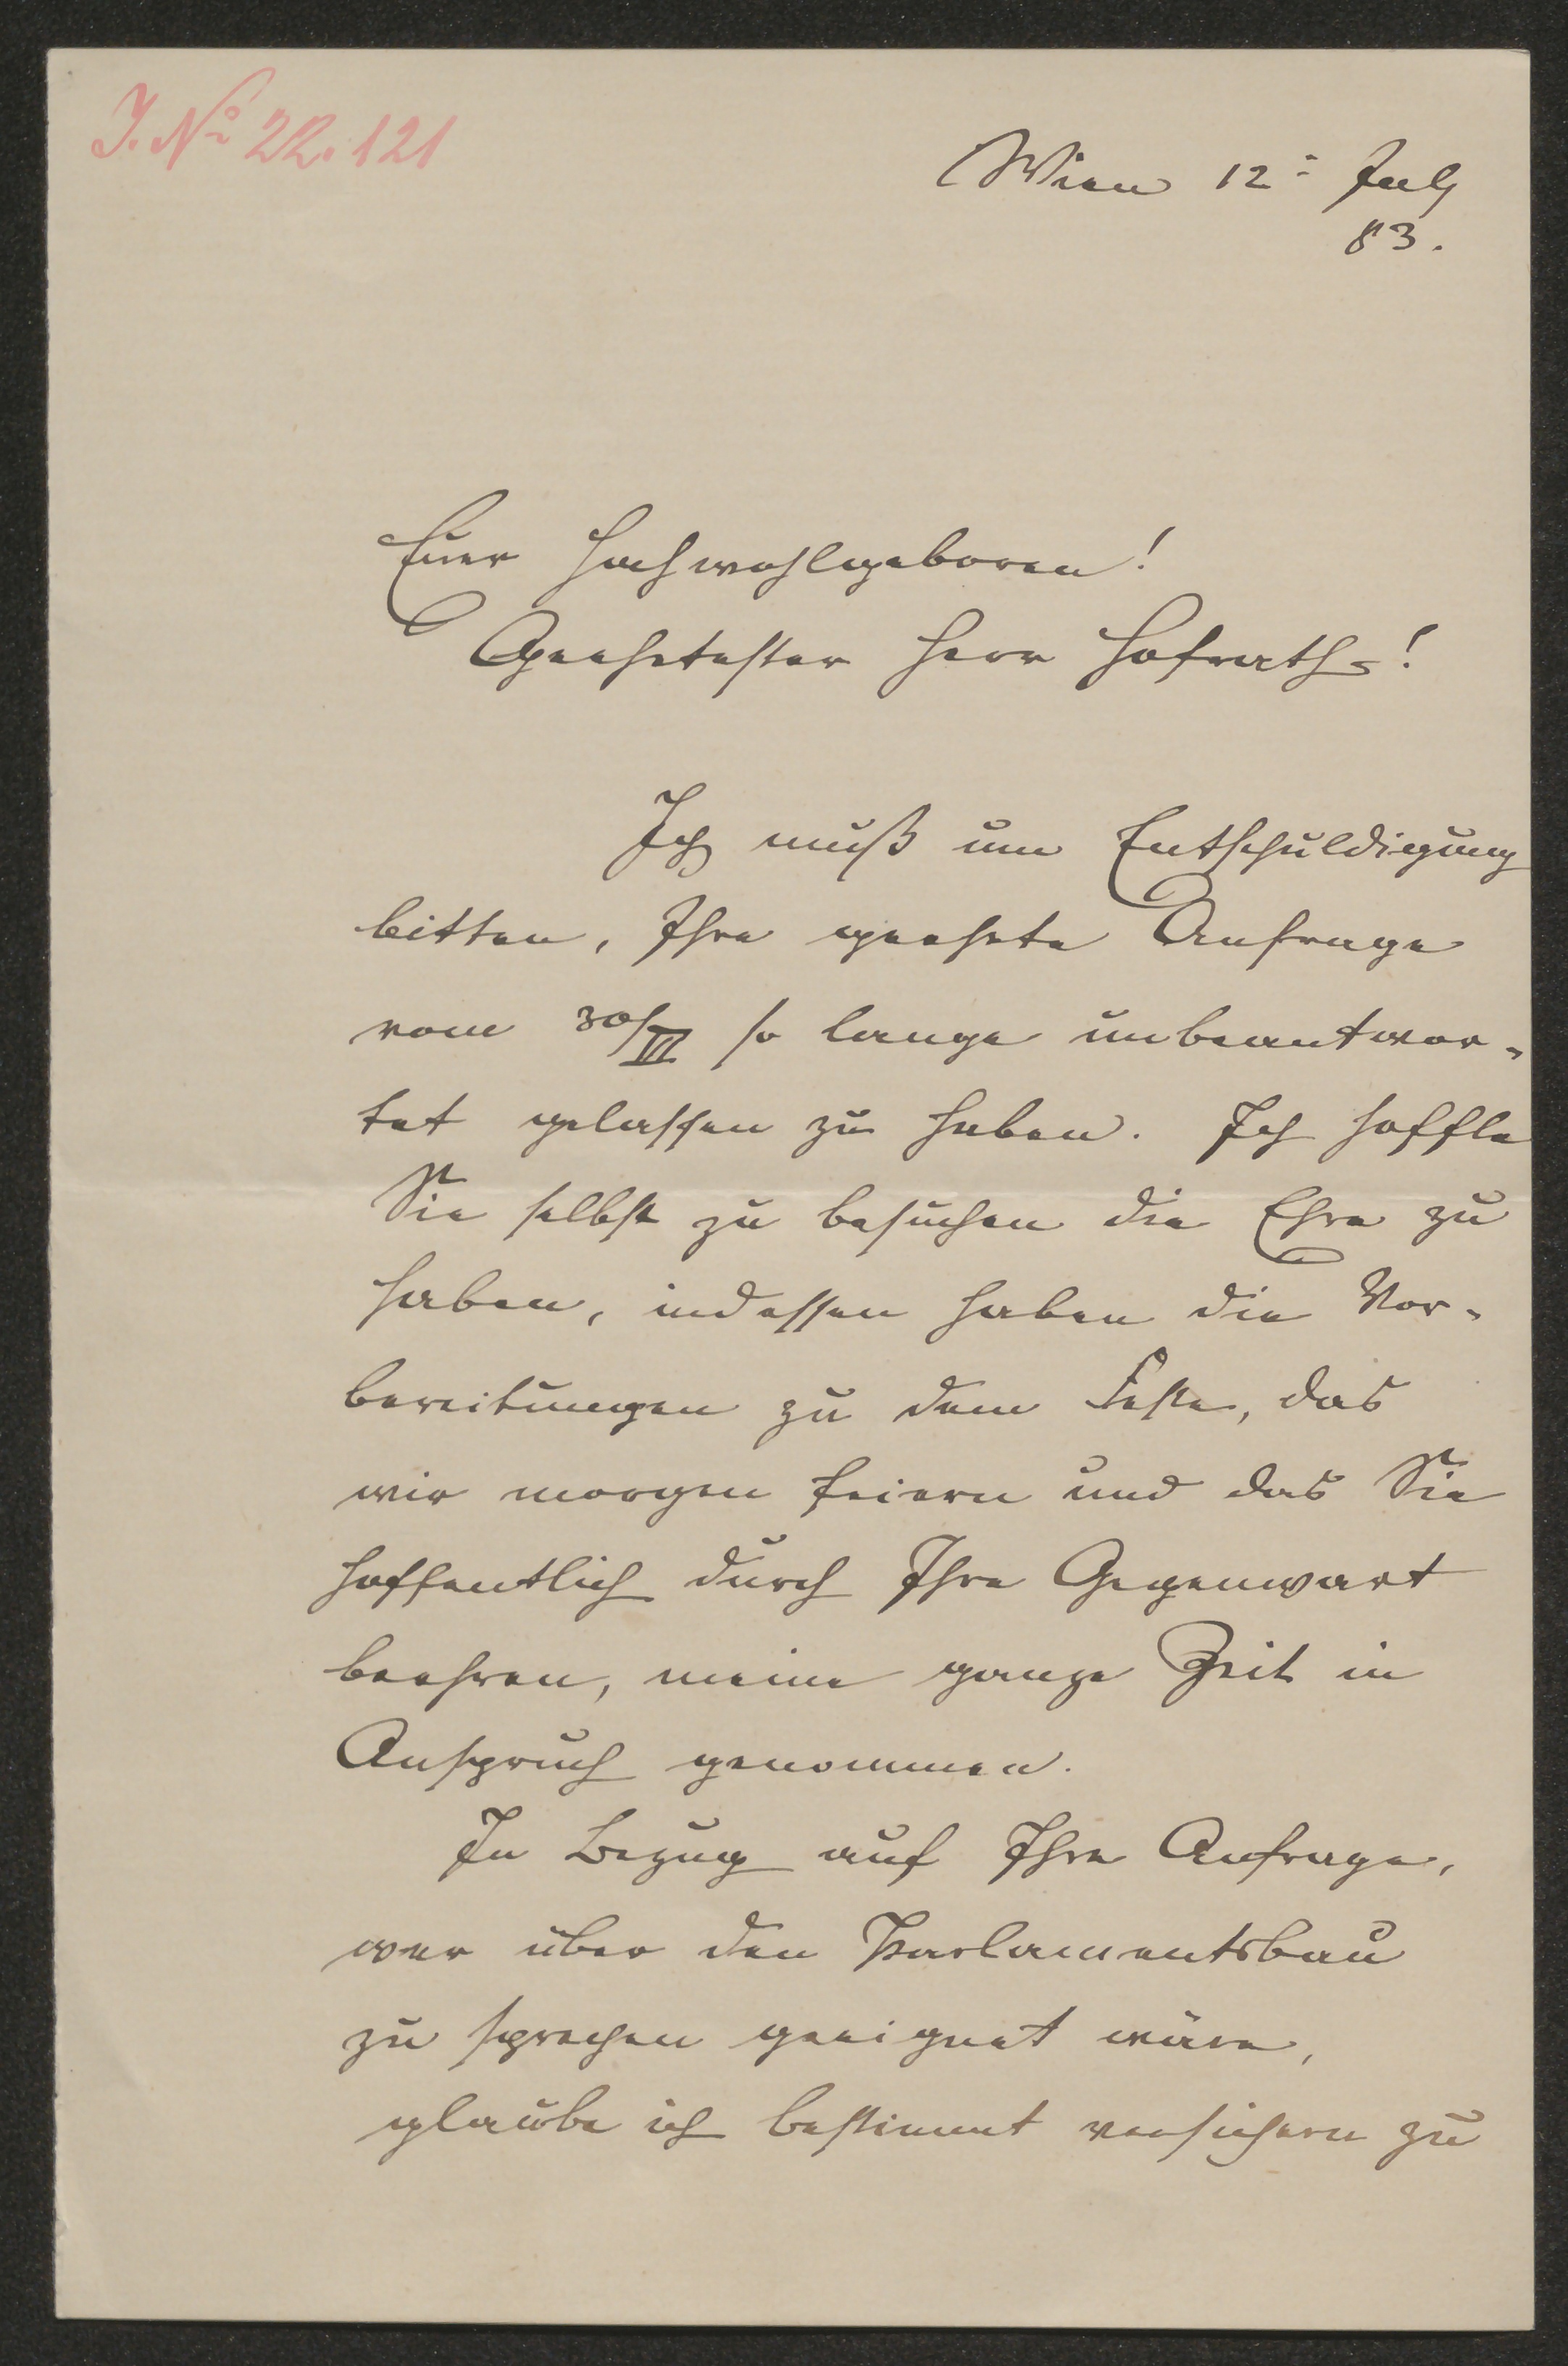 J. No 22.121
Wien 12. July
83.
Euer Hochwohlgeboren!
Geehrtester Herr Hofrath!
Ich muß um Entschuldigung
bitten, Ihre geehrte Anfrage
vom 30/VI so lange unbeantwor-
tet gelassen zu haben. Ich hoffte
Sie selbst zu besuchen die Ehre zu
haben, indessen haben die Vor-
bereitungen zu dem Feste, das
wir morgen feiern und das Sie
hoffentlich durch Ihre Gegenwart
beehren, meine ganze Zeit in
Anspruch genommen.
In Bezug auf Ihre Anfrage,
wer über den Parlamentsbau
zu sprechen geeignet wäre,
glaube ich bestimmt versichern zu